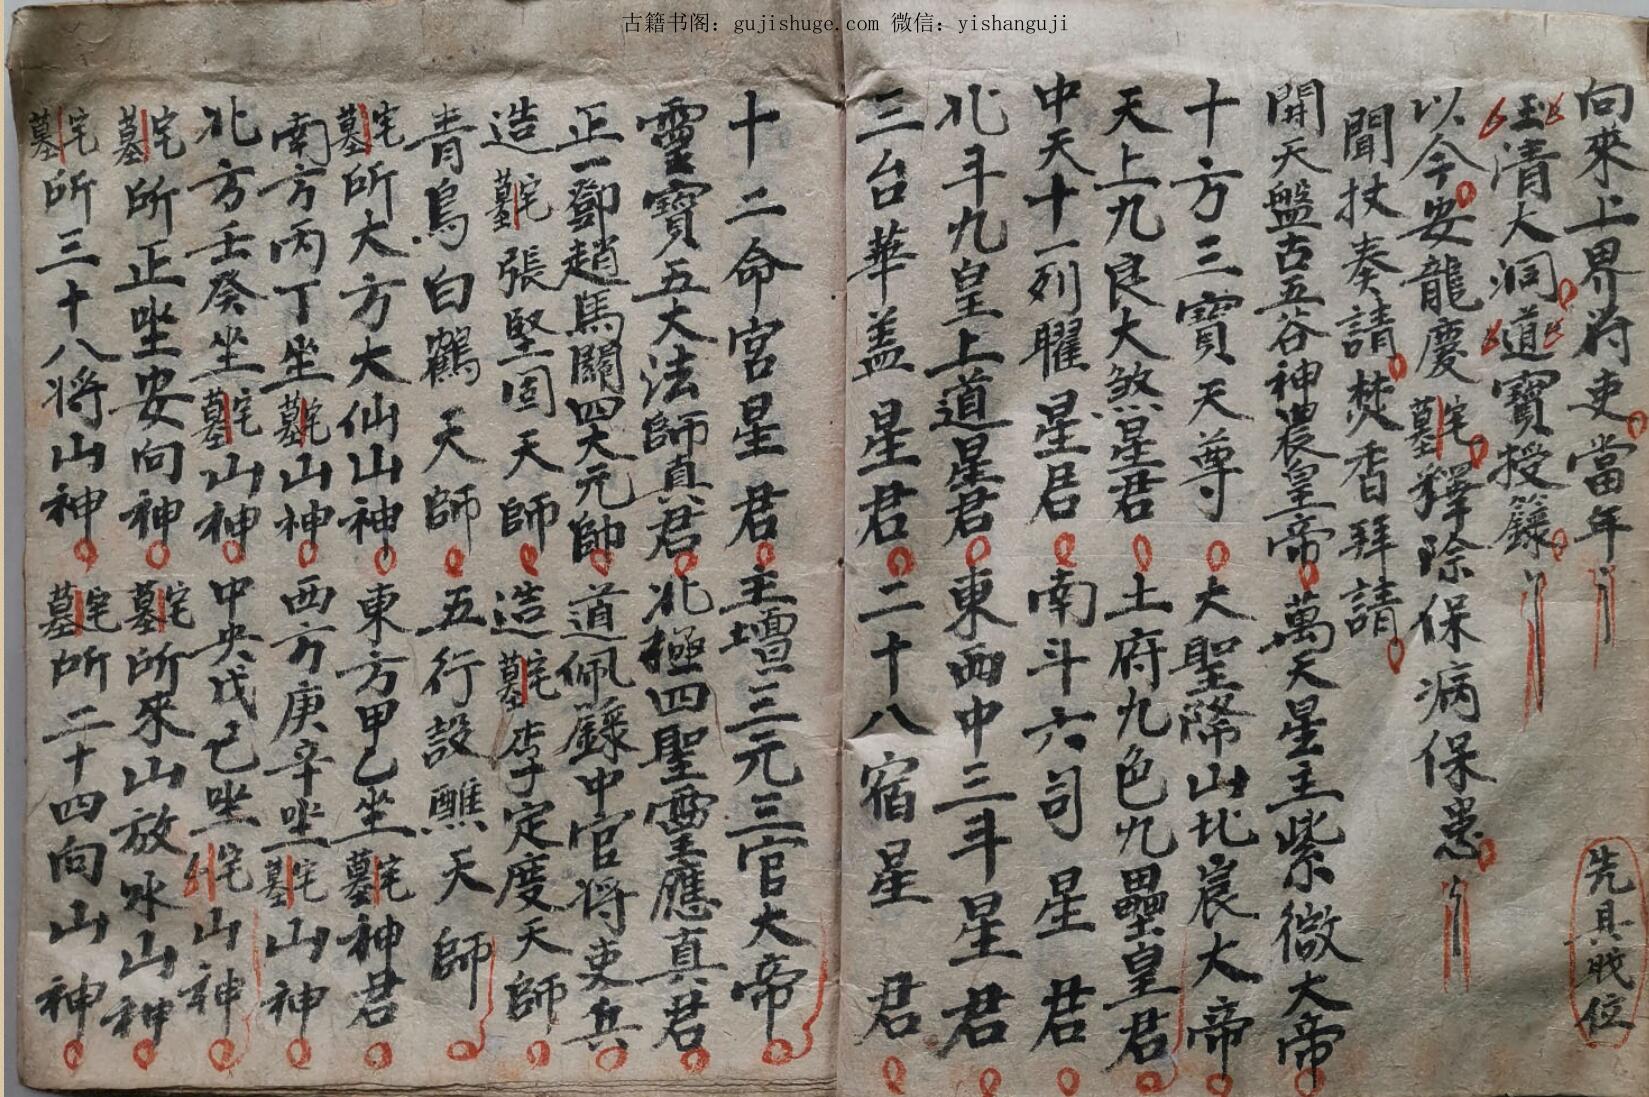 古籍书阁：gujishuge.com 微信：yishanguji
向來上界將吏當年
先具戝位
玉清大洞道寶授籙
以今安龍慶宅墓釋除保病保患
聞扙奏請焚香拜請
開天盤古五谷神農皇帝 萬天星主紫微大帝
十方三寳天尊 大聖降山北宸大帝
天上九良大煞星君 土府九色九壘皇君
中天十一列曜星君 南斗六司星君
北斗九皇上道星君 東西中三斗星君
三台華盖星君 二十八宿星君
十二命宮星君 主壇三元三官大帝
靈寶五大法師真君 北極四聖靈應真君
正一鄧趙馬關四大元帥 道佩籙中官将吏兵
造宅墓張堅固天師 造宅墓李定度天師
青鳥白鶴天師 五行設醮天師
宅墓所大方大仙山神 東方甲乙坐宅墓神君
南方丙丁坐宅墓山神 西方庚辛坐宅墓山神
北方壬癸坐宅墓山神 中央戊己坐宅山神
宅墓所正坐安向神 宅墓所來山放水山神
宅墓所三十八将山神 宅墓所二十四向山神